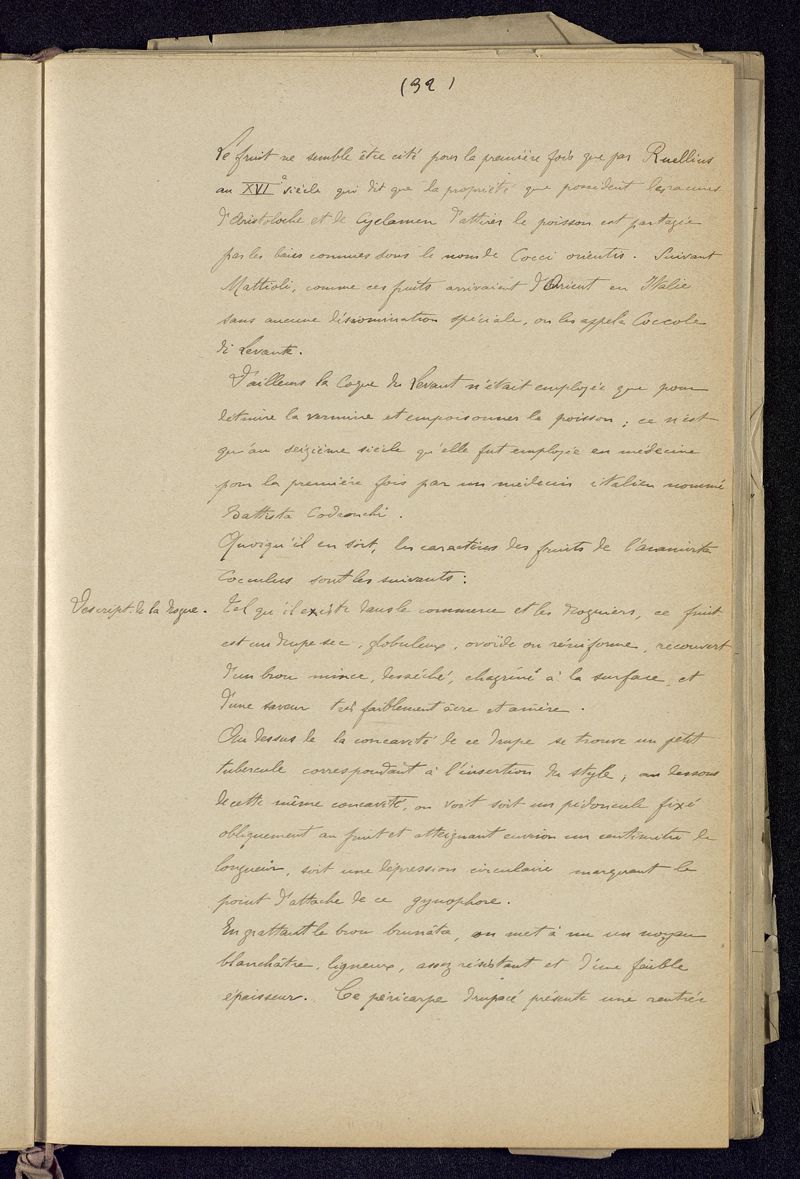 (32)
Le fruit ne semble être cité pour la première fois que par Ruellius
au XVIe siècle qui dit que la propriété que possèdent les racines
d'Aristoloche et de Cyclamen d'attirer le poisson est partagée
par les baies connues sous le nom de Cocci orientis. Suivant
Mattioli, comme ces fruits arrivaient d'Orient en Italie
sans aucune dénomination spéciale, on les appela Coccole
di Levante.
D'ailleurs la Coque du Levant n'était employée que pour
détruire la vermine et empoisonner le poisson ; ce n'est
qu'au seizième siècle qu'elle fut employée en médecine
pour la première fois par un médecin italien nommé
Battista Codronchi.
Quoiqu'il en soit, les caractères des fruits de l'anamirta
Cocculus sont les suivants :
Descript. de la drogue. Tel qu'il existe dans le commerce et les droguiers, ce fruit
est un drupe sec, globuleux, ovoïde ou réniforme, recouvert
d'un brou mince, desséché, chagriné à la surface, et
d'une saveur très faiblement âcre et amère.
Au dessus de la concavité de ce drupe se trouve un petit
tubercule correspondant à l'insertion du style ; au dessous
de cette même concavité, on voit soit un pédoncule fixé
obliquement au fruit et atteignant environ un centimètre de
longueur, soit une dépression circulaire marquant le
point d'attache de ce gynophore.
En grattant le brou brunâtre, on met à nu un noyau
blanchâtre, ligneux, assez résistant et d'une faible
épaisseur. Ce péricarpe drupacé présente une rentrée